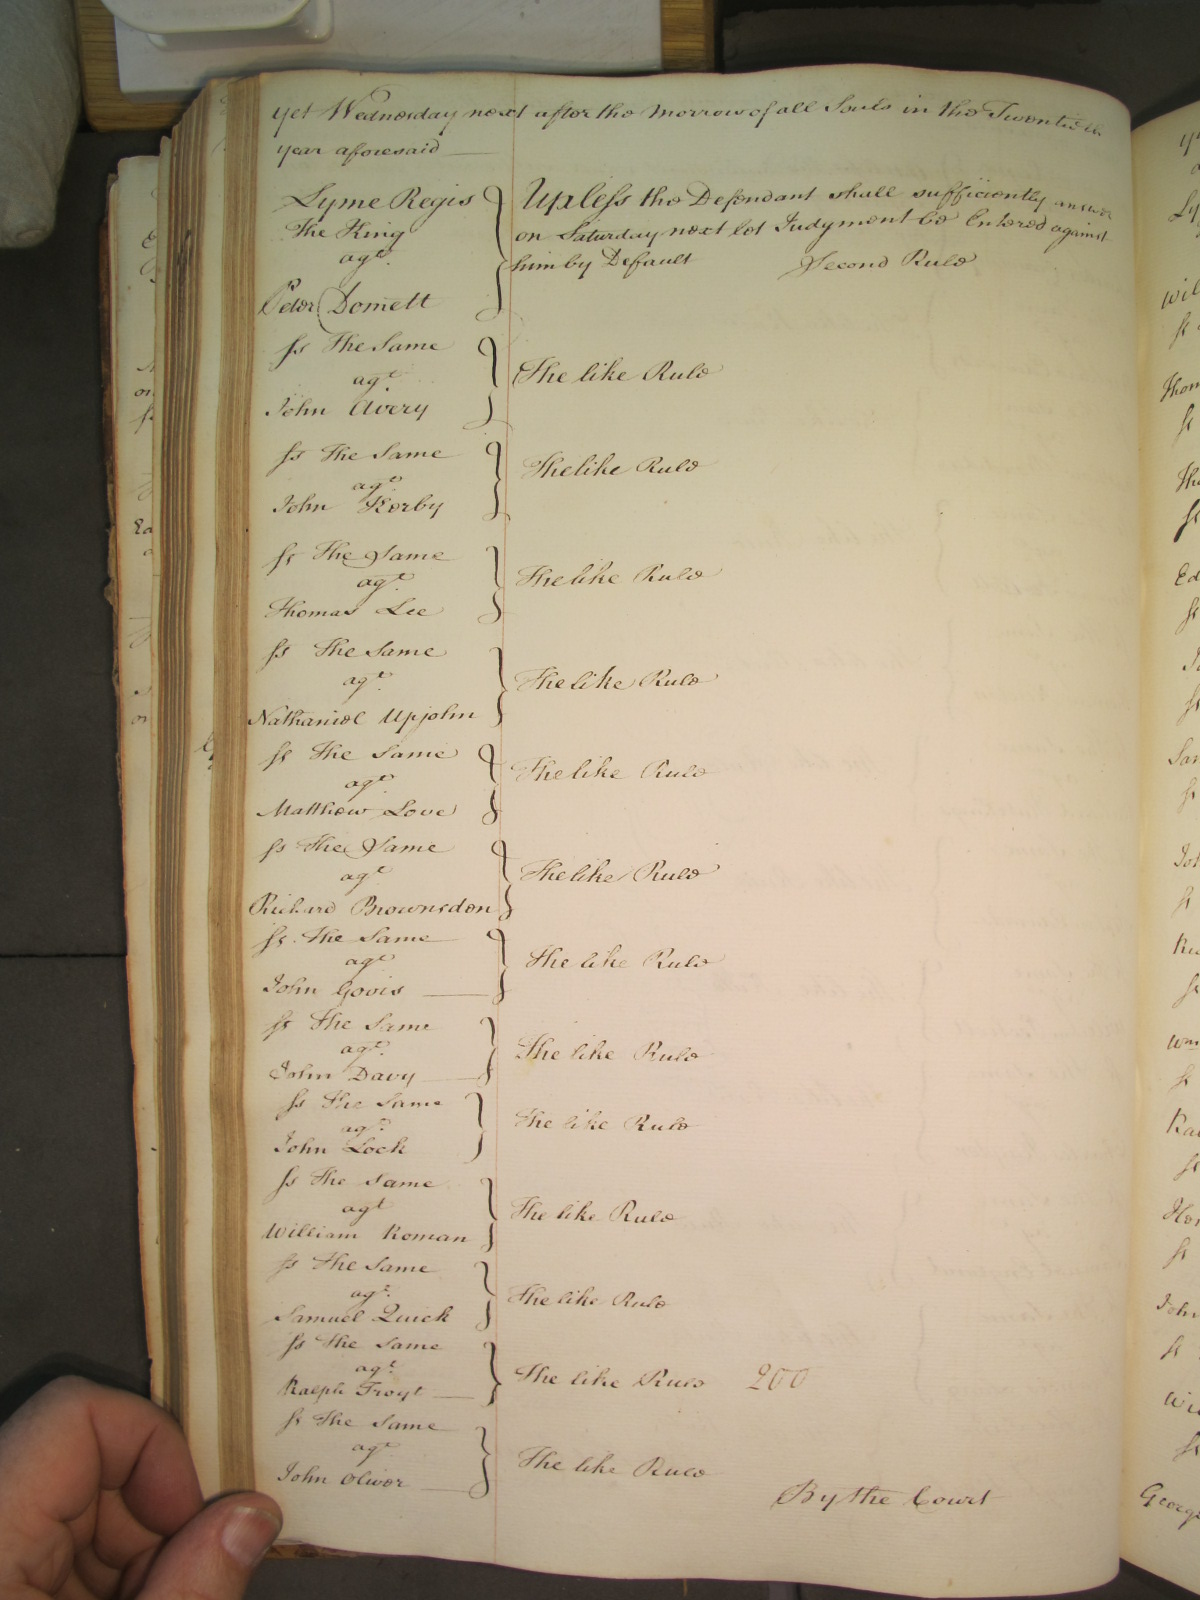 yet Wednesday next after the Morrow of all Souls in the Twentieth
year aforesaid
Lyme Regis
The King
agt.
Peter Domett
Unless the Defendant shall sufficiently answer
on Saturday next let Judgment be Entered against
him by Default Second Rule
Ss The Same
agt.
John Avery
The like Rule
Ss The Same
agt.
John Kerby
The like Rule
Ss The Same
agt.
Thomas Lee
The like Rule
Ss The Same
agt.
Nathaniel Upjohn
The like Rule
Ss The Same
agt.
Matthew Love
The like Rule
Ss The Same
agt.
Richard Brownsdon
The like Rule
Ss The Same
agt.
John Govis
The like Rule
Ss The Same
agt.
John Davy
The like Rule
Ss The Same
agt.
John Lock
The like Rule
Ss The Same
agt
William Roman
The like Rule
Ss The Same
agt.
Samuel Quick
The like Rule
Ss The Same
agt.
Ralph Froyt
The like Rule 200
Ss The Same
agt.
John Oliver
The like Rule
By the Court